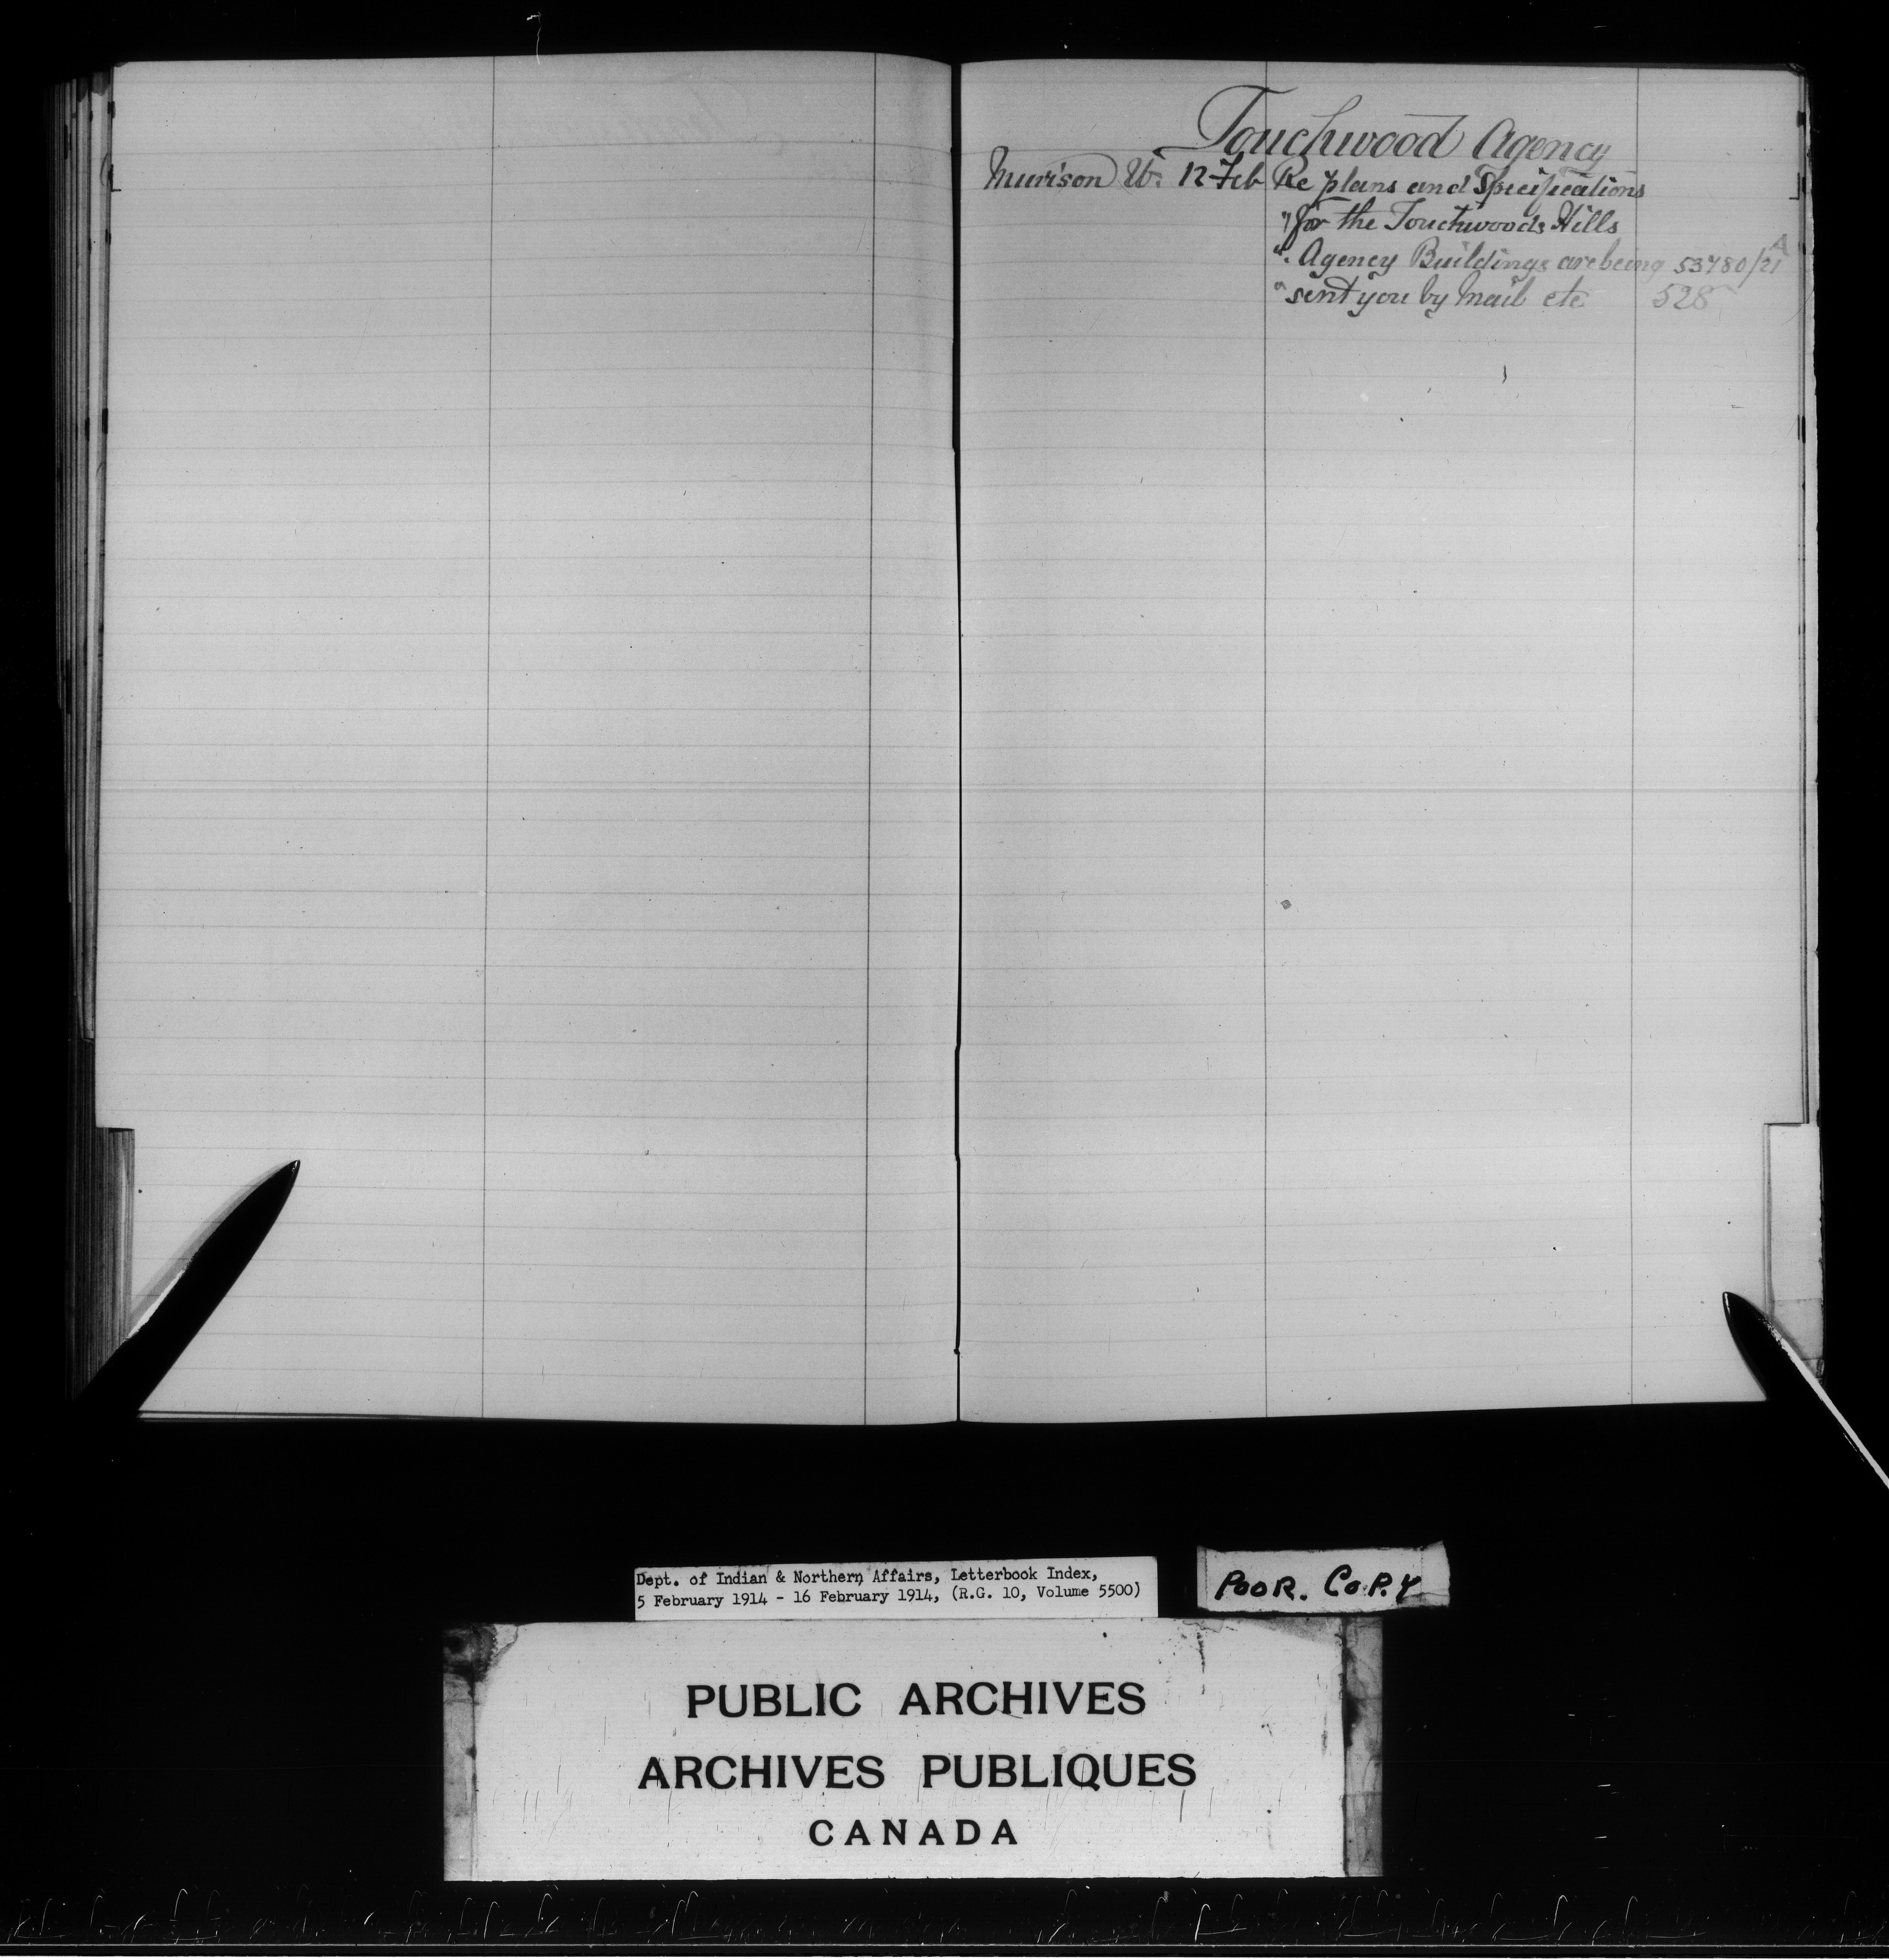 Touchwood Agency
Murison W. 12 Feb Re plans and Specifications
" for the Touchwoods Hills
" Agency Buildings are being 53780/21 A
" sent you by Mail etc 528
Dept. of Indian & Northern Affairs, Letterbook Index,
5 February 1914 - 16 February 1914, (R.G. 10, Volume 5500)
POOR. COPY
PUBLIC ARCHIVES
ARCHIVES PUBLIQUES
CANADA